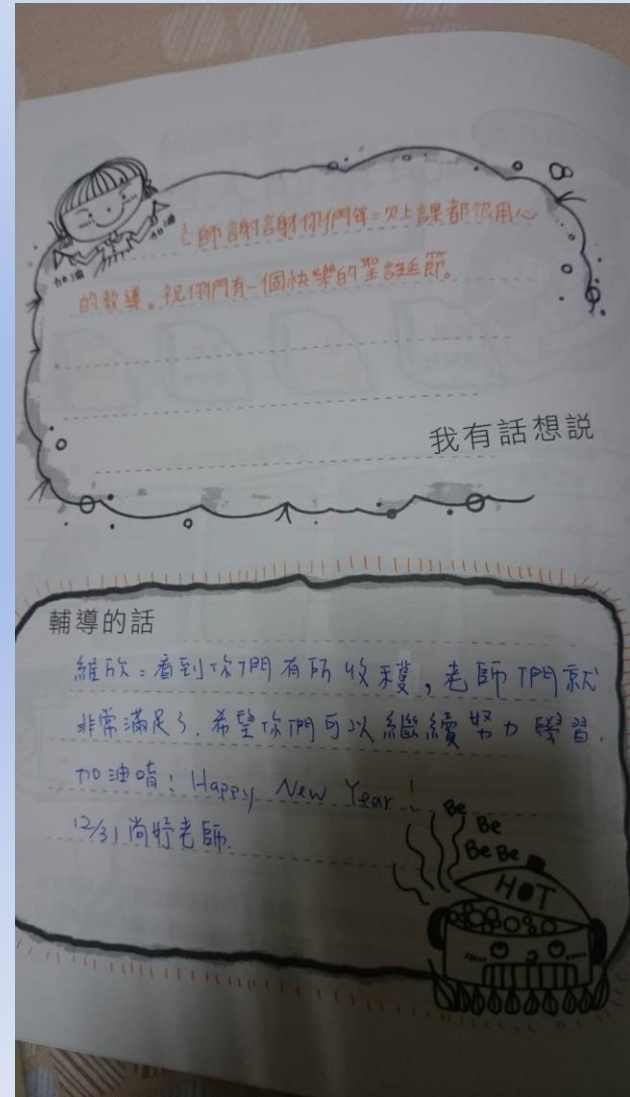 老師謝謝你們每一次上課都很用心
的教導。祝你們有一個快樂的聖誕節。
加油
加油
我有話想説
輔導的話
維欣：看到你們有所收穫，老師們就
非常滿足了．希望你們可以繼續努力學習．
加油唷！Happy New Year！
12/31 尚妤老師．
Be
Be
Be Be
HOT